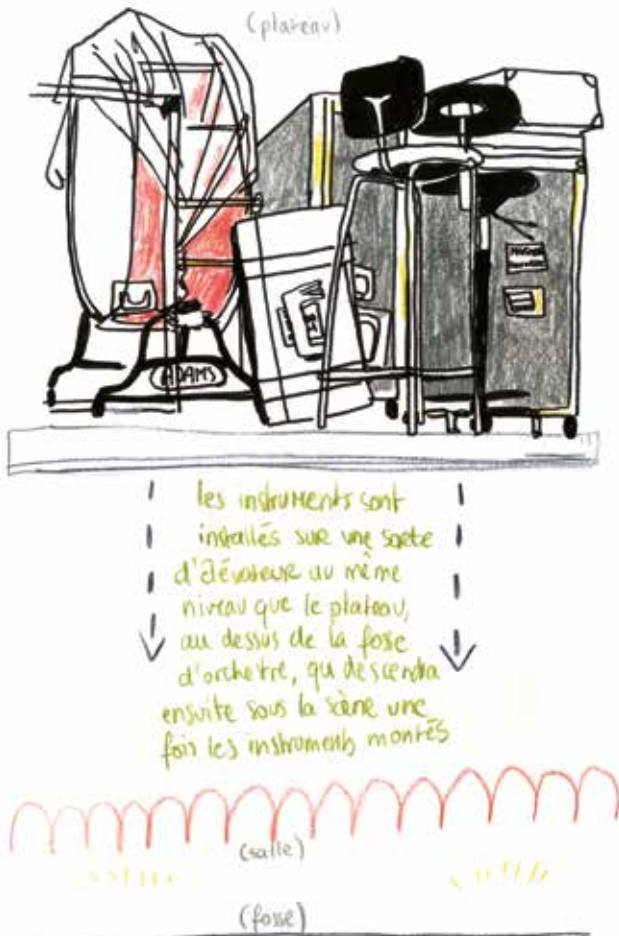 (plateau)
ADAMS
les instruments sont
installés sur une sorte
d'élévateur au même
niveau que le plateau,
au dessus de la fosse
d'orchetre, qu descendra
ensuite sous la scène une
fois les instruments montés
(salle)
(fosse)